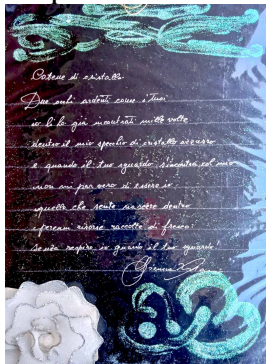 Catene di cristallo
Due occhi ardenti come i tuoi
io li ho già incontrati mille volte
dentro il mio specchio di cristallo azzurro
e quando il tuo sguardo s'incontra col mio
non mi par vero di essere io
quella che sente nascere dentro
speranze rosse raccolte di fresco
senza respiro io guardo il tuo sguardo.